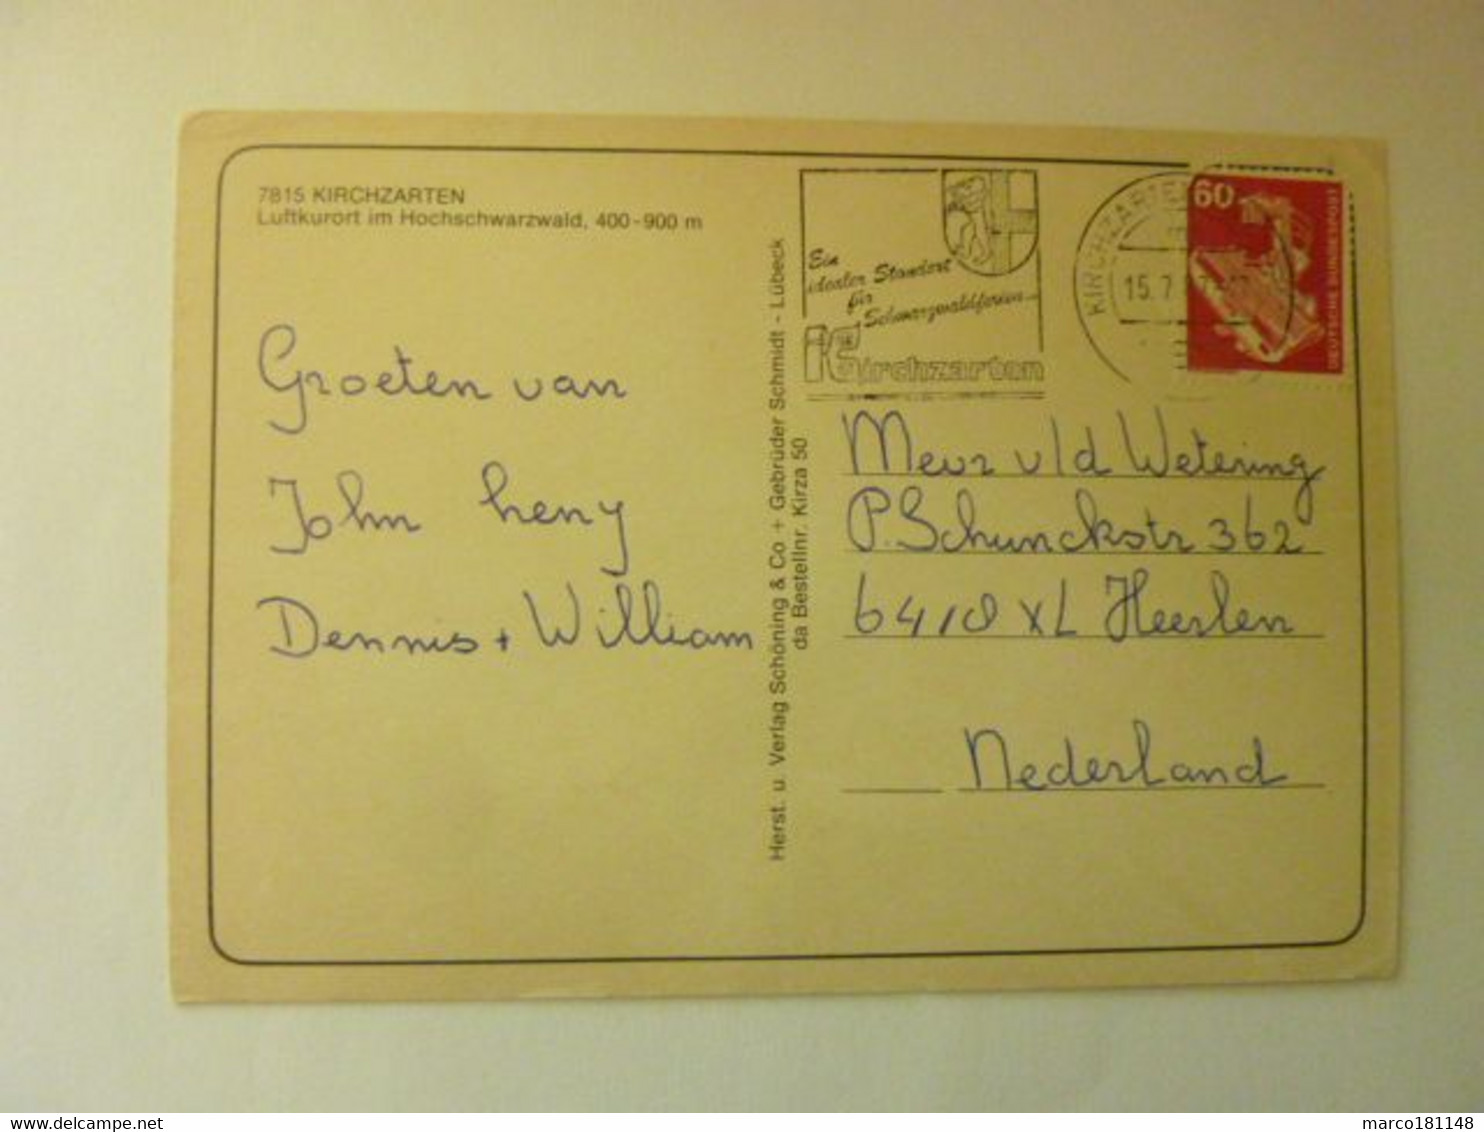 7815 KIRCHZARTEN
Luftkurort im Hochschwarzwald, 400-900 m
Groeten van
John heny
Dennis + William
Herst. u. Verlag Schöning & Co + Gebrüder Schmidt - Lübeck
da Bestellnr. Kirza 50
Ein
idealer Standort
für
Schwarzwaldferien
Kirchzarten
KIRCHZARTEN
15.7
60
DEUTSCHE BUNDESPOST
Mevr v/d Wetering
P. Schunckstr 362
6418 XL Heerlen
Nederland
marco181148